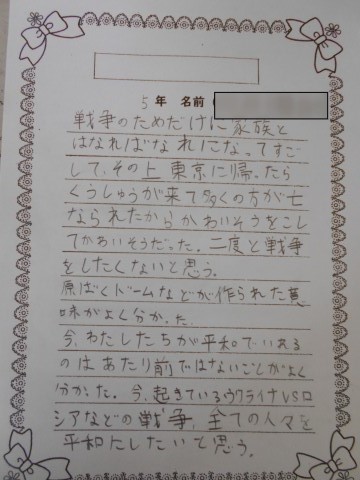 5年 名前
戦争のためだけに家族と
はなればなれになってすご
して、その上東京に帰ったら
くうしゅうが来て多くの方が亡
なられたからかわいそうをこし
てかわいそうだった。二度と戦争
をしたくないと思う。
原ばくドームなどが作られた意
味がよく分かった。
今、わたしたちが平和でいれる
のはあたり前ではないことがよく
分かった。今、起きているウクライナVSロ
シアなどの戦争、全ての人々を
平和にしたいと思う。